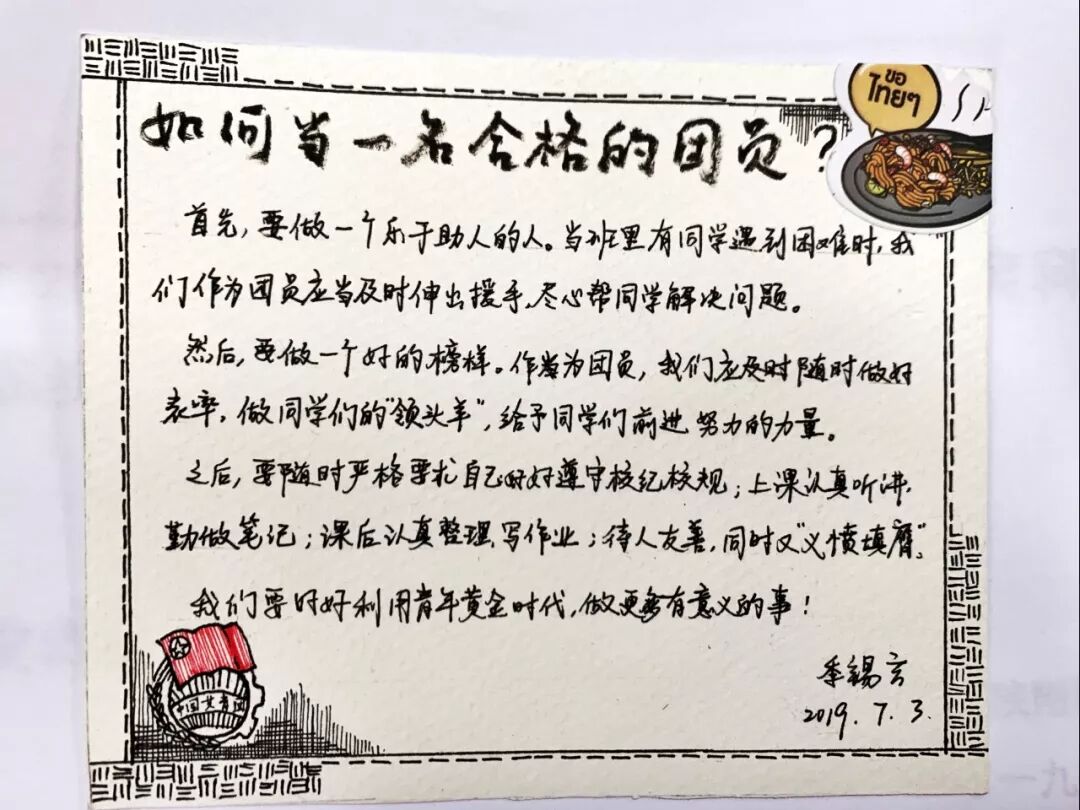 如何当一名合格的团员？
ขอ
ไทยๆ
首先，要做一个乐于助人的人。当班里有同学遇到困难时，我
们作为团员应当及时伸出援手，尽心帮同学解决问题。
然后，要做一个好的榜样。作为团员，我们应及时随时做好
表率，做同学们的“领头羊”，给予同学们前进努力的力量。
之后，要随时严格要求自己好好遵守校纪校规；上课认真听讲，
勤做笔记；课后认真整理，写作业；待人友善，同时又“义愤填膺”。
我们要好好利用青年黄金时代，做更多有意义的事！
中国共青团
季锡言
2019.7.3.